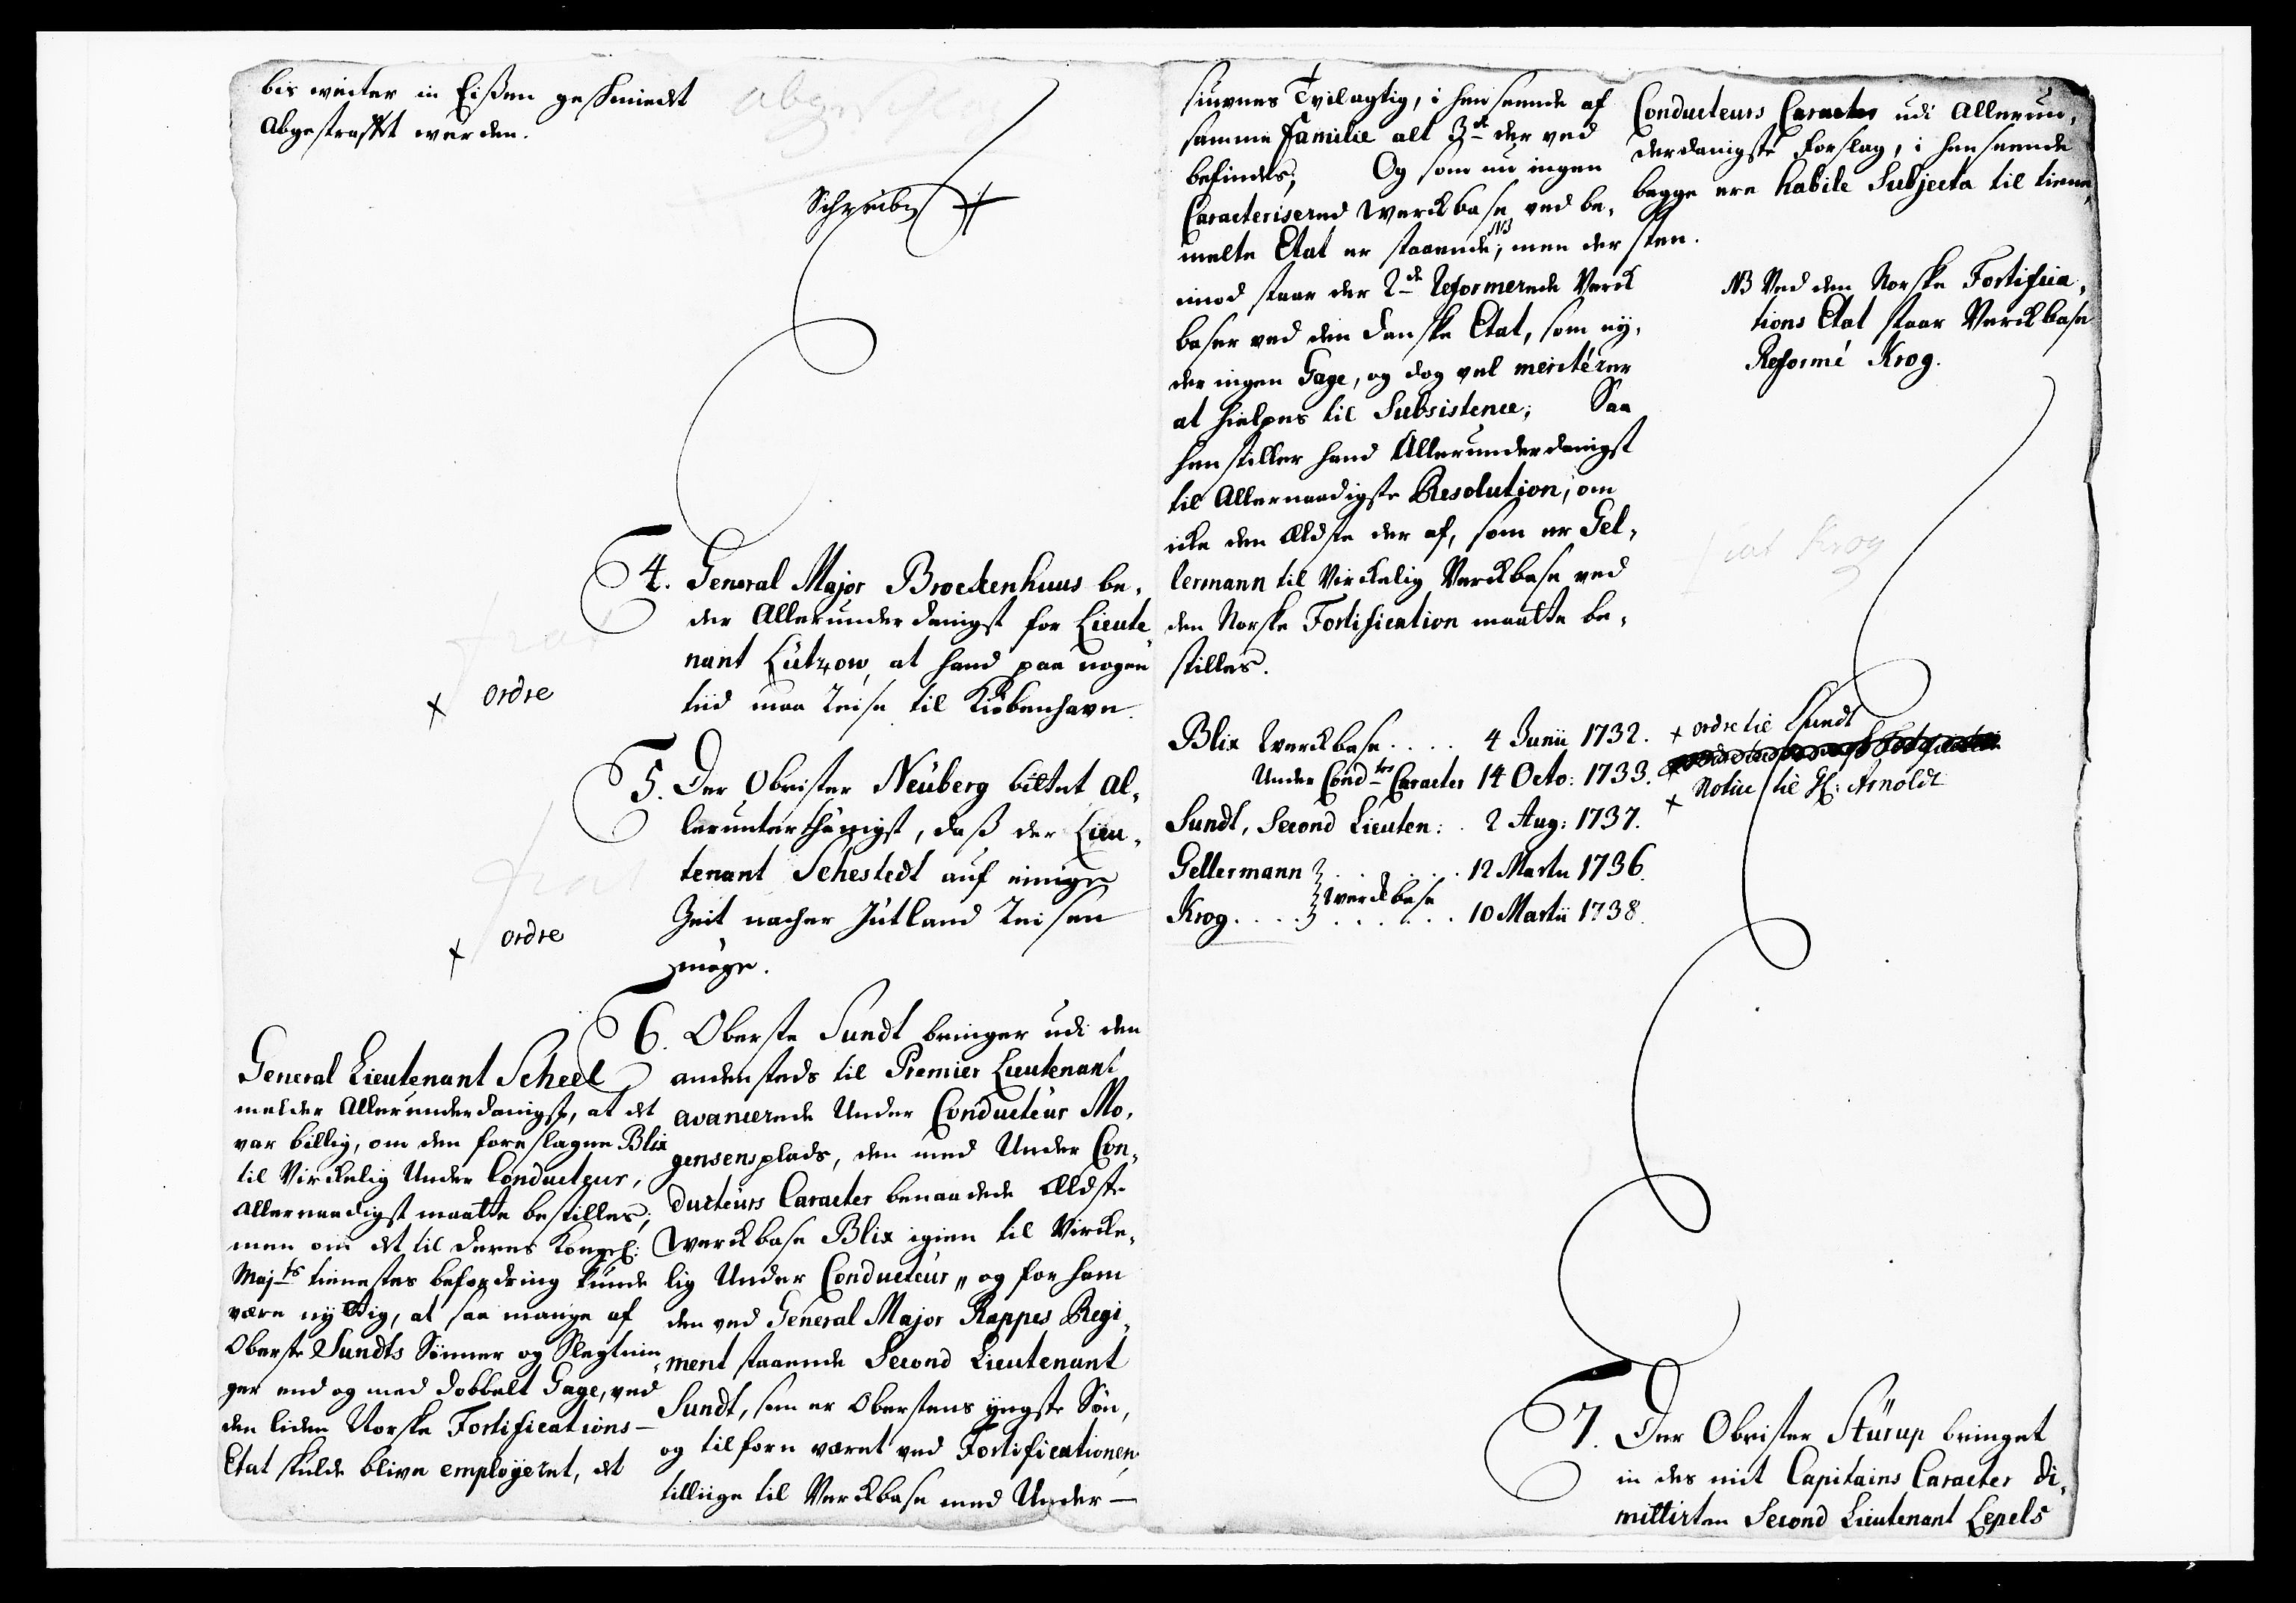 bis weiter in Eißen geschmiedt
Abgestrafft werden.
Schreiben
4. General Major Brockenhuus be-
der Allerunderdanigst for Lieute
nant Lützow, at hand paa nogen
tiid maa Reise til Kiøbenhavn.
× ordre
5. Der Obrister Neuberg bittet al-
lerunterthänigst, daß der Lieu-
tenant Sehestedt auf einige
Zeit nacher Jütland Reisen
möge.
× ordre
6. Oberste Sundt bringer udi den
andensteds til Premier Lieutenant
avancerede Under Conducteur Mo-
gensens plads, den med Under Con-
ducteurs Caracter benaadede Ældste
Werckbase Blix igien til Vircke-
lig Under Conducteur, og for ham
den ved General Major Rappes Regi-
ment staaende Second Lieutenant
Sundt, som er Oberstens yngste Søn,
og tilforn været ved Fortificationen,
tilliige til Werckbase med Under-
General Lieutenant Scheel
melder Allerunderdanigst, at det
var billig, om den foreslagne Blix
til Virckelig Under Conducteur,
Allernaadigst maatte bestilles;
men om det til Deres Kongel:
Maj-ts tienestes befordring kunde
være nyttig, at saa mange af
Oberste Sundts Sønner og Slegtnin-
ger end og med dobbelt Gage, ved
den liden Norske Fortifications-
Etat skulde blive employeret, det
siunes Tvilagtig, i henseende af
samme Familie alt 3de der ved
befindes; Og som nu ingen
Caracterisered Werckbase ved be-
melte Etat er staaende, NB men der
imod staar der 2de Reformerede Verck
baser ved den danske Etat, som ny-
der ingen Gage, og dog vel meritérer
at hielpes til Subsistence; Saa
henstiller hand Allerunderdanigst
til Allernaadigste Resolution, om
icke den Ældste der af, som er Gel-
lermann til Virckelig Werckbase ved
den Norske Fortification maatte be-
stilles.
Blix Werckbase . . . . 4 Junii 1732.
Under Cond-trs Caracter 14 Octo: 1733.
Sundt, Second Lieuten: . 2 Aug: 1737.
Gellermann . . . . . 12 Martii 1736.
Werckbase
Krog . . . . . . . . . . 10 Martii 1738.
Conducteurs Caracter udi Allerun-
derdanigste forslag, i henseende
begge ere habile Subjecta til tiene-
sten.
NB Ved den Norske Fortifica-
tions Etat staar Werckbase
Reformé Krog.
fiat Krog
× ordre til Sundt
× Notice til Gl: Arnoldt
7. Der Obrister Stürup bringet
in des mit Capitains Caracter di-
mittirten Second Lieutenant Lepels